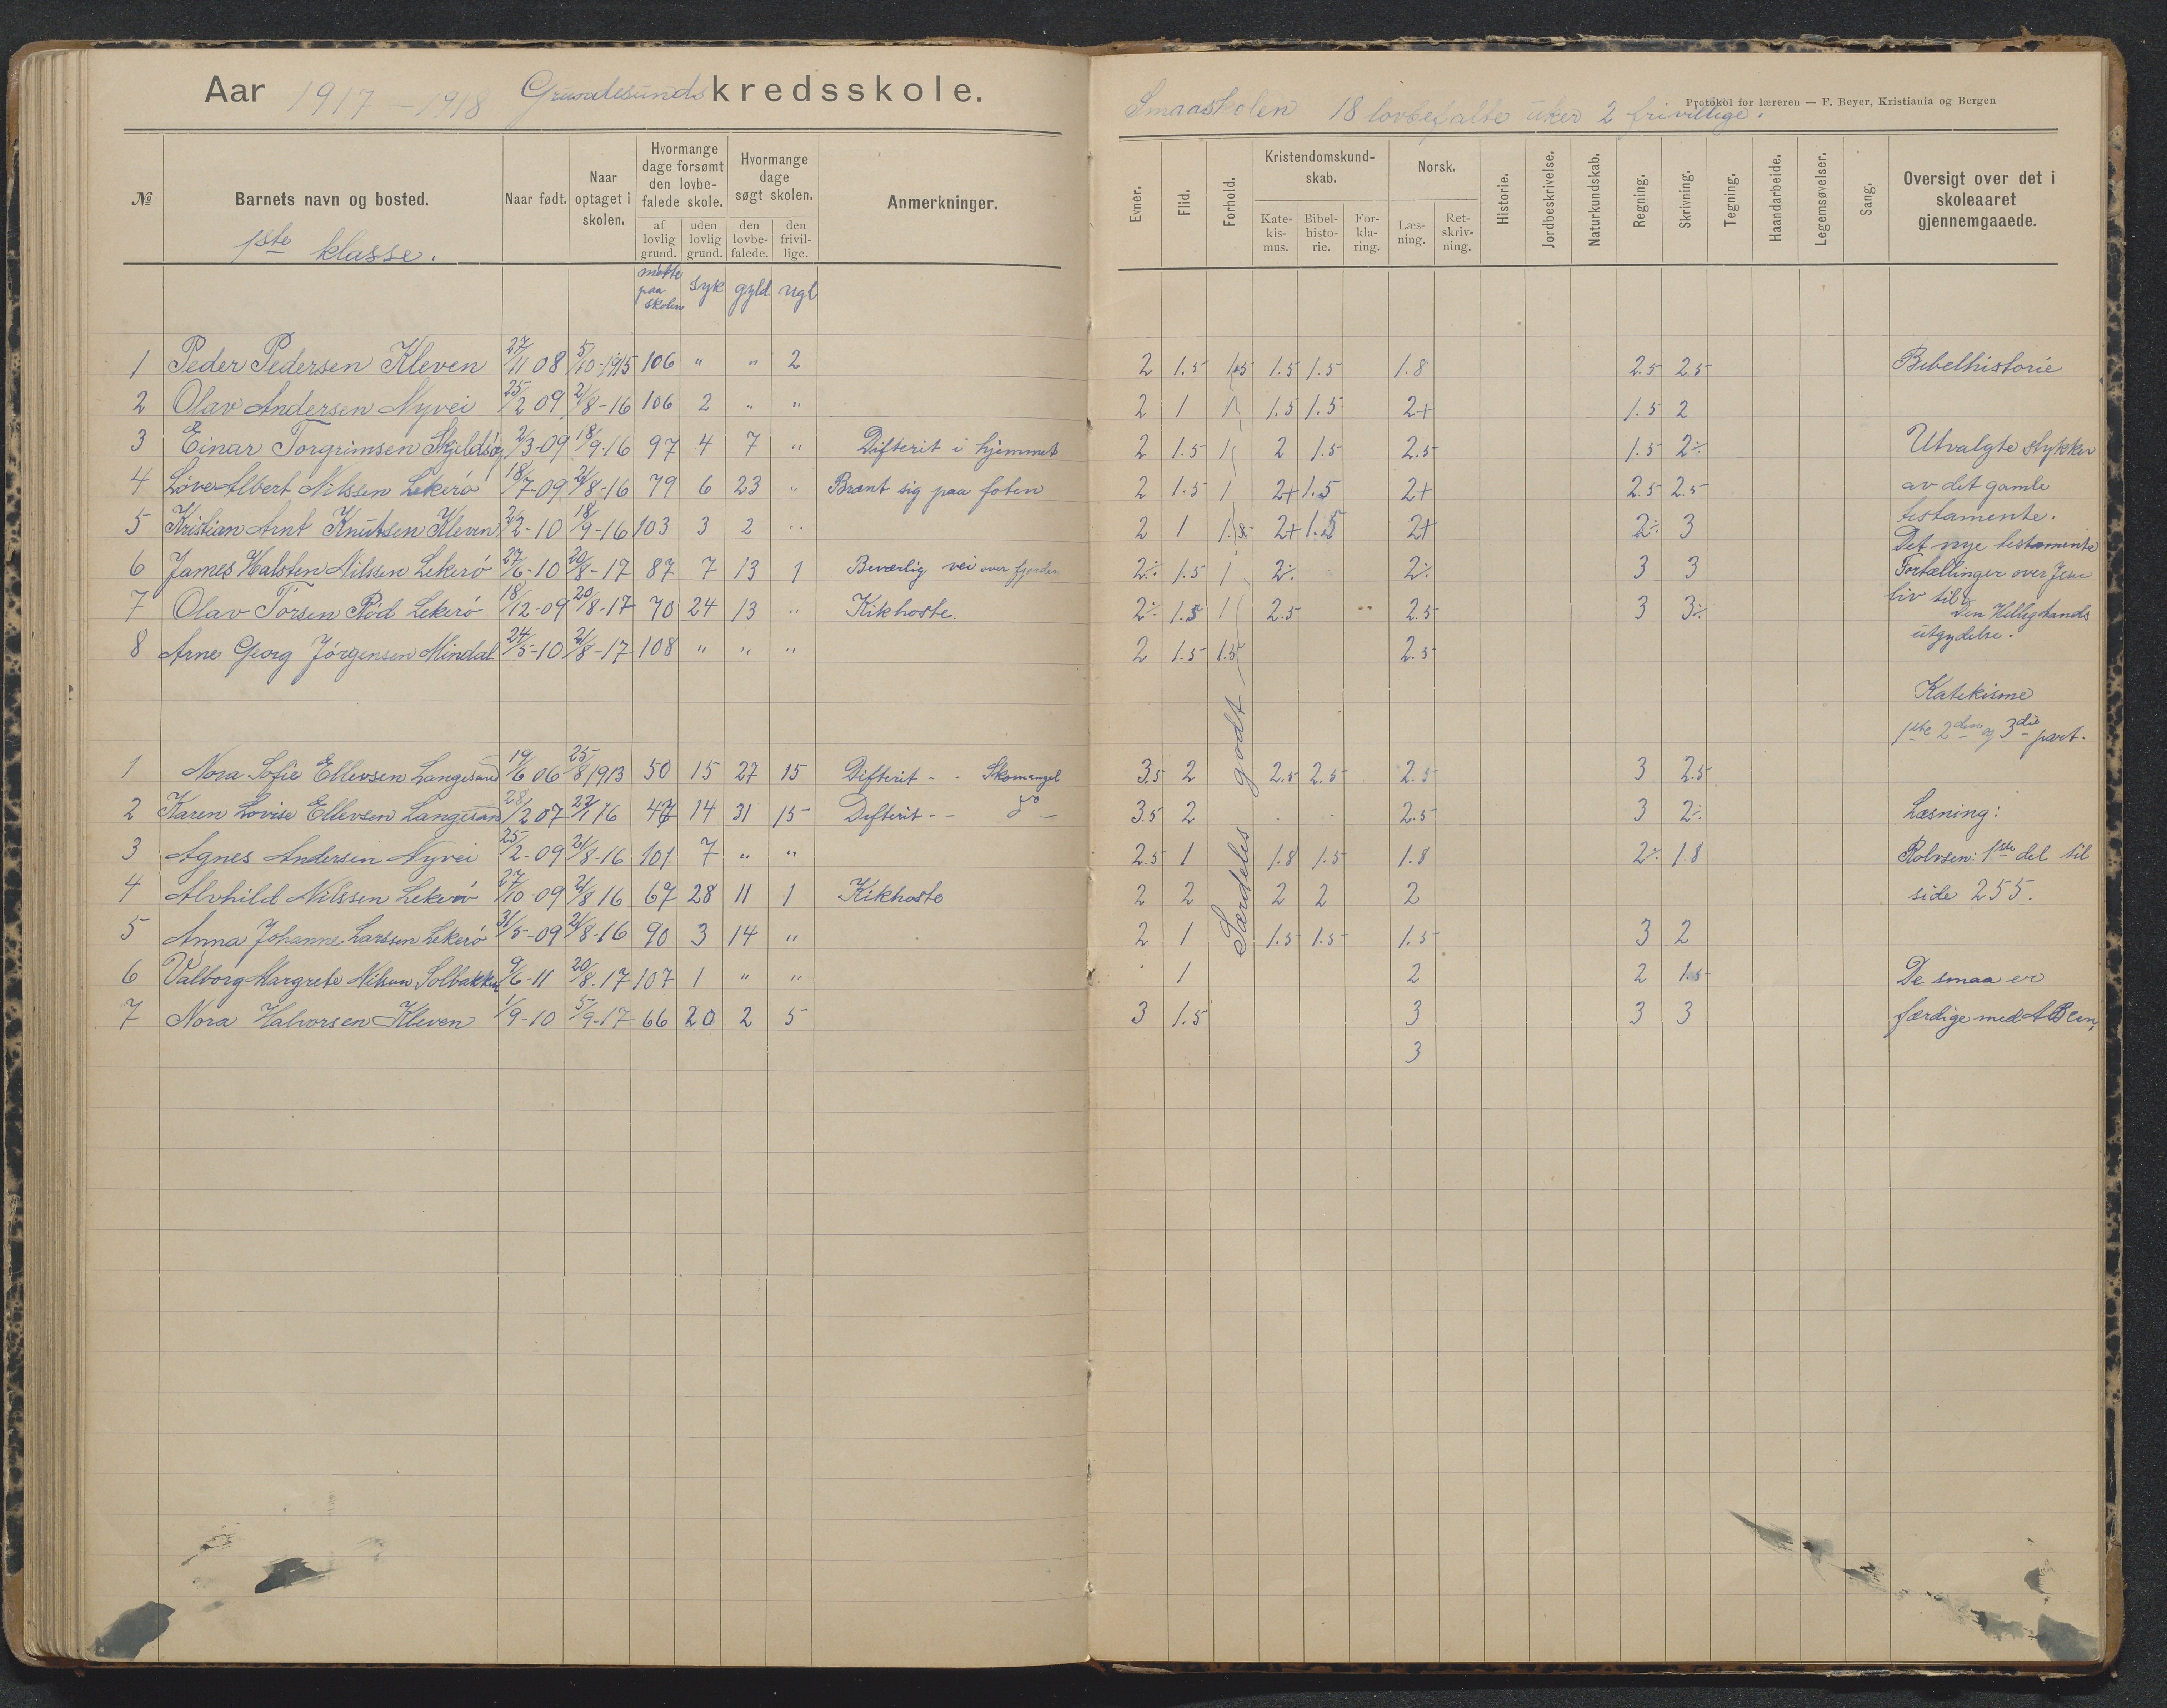 Aar 1917–1918 Grundesunds kredsskole.
№ Barnets navn og bosted. Naar født. Naar optaget i skolen. Hvormange dage forsømt den lovbefalede skole. af lovlig grund. uden lovlig grund. Hvormange dage søgt skolen. den lovbefalede. den frivillige. Anmerkninger.
1ste klasse.
møtte paa skolen syk gyld ugl
1 Peder Pedersen Kleven 27/11 08 5/10-1915 106 " " 2
2 Olav Andersen Nyvei 25/2 09 21/8-16 106 2 " "
3 Einar Torgrimsen Skjeldsø 2/3-09 18/9-16 97 4 7 " Difterit i hjemmet
4 Albert Nilssen Lekerø 18/7-09 21/8-16 79 6 23 " Brænt sig paa foten
5 Kristian Arnt Knutsen Kleven 2/2-10 18/9-16 103 3 2 "
6 James Halsten Nilssen Lekerø 27/6-10 20/8-17 87 7 13 1 vei over fjorden
7 Olav Torsen Rød Lekerø 18/12-09 20/8-17 70 24 13 " Kikhoste.
8 Arne Georg Jørgensen Mindal 24/5-10 21/8-17 108 " " "
1 Nora Sofie Ellevsen Langesund 19/6 06 25/8 1913 50 15 27 15 Difterit - - Skomangel
2 Karen Lovise Ellevsen Langesund 28/2 07 14 31 15 Difterit - - do -
3 Agnes Andersen Nyvei 25/2-09 21/8-16 101 7 " "
4 Alvhild Nilssen Lekerø 27/10-09 21/8 16 67 28 11 1 Kikhoste
5 Anna Johanne Larssen Lekerø 31/5-09 21/8-16 90 3 14 "
6 Valborg Margrete Nilsen Solbakken 9/6-11 20/8-17 107 1 " "
7 Nora Halvorsen Kleven 1/9-10 5/9-17 66 20 2 5
Protokol for læreren — F. Beyer, Kristiania og Bergen
Smaaskolen 18 lovbefalte uker 2 frivillige.
Evner. Flid. Forhold. Kristendomskundskab. Katekismus. Bibelhistorie. Forklaring. Norsk. Læsning. Retskrivning. Historie. Jordbeskrivelse. Naturkundskab. Regning. Skrivning. Tegning. Haandarbeide. Legemsøvelser. Sang. Oversigt over det i skoleaaret gjennemgaaede.
2 1.5 1.5 1.5 1.5 1.8 2.5 2.5 Bibelhistorie
2 1 1 1.5 1.5 2+ 1.5 2
2 1.5 1 2 1.5 2.5 1.5 2% Utvalgte stykker
2 1.5 1 2+ 1.5 2+ 2.5 2.5 av det gamle
2 1 2+ 1.5 2+ 2% 3 testamente.
Det nye testamente
2% 1.5 1 2% 2% 3 3 Fortællinger over Jesu
liv til
2% 1.5 1 2.5 " 2.5 3 3% Den Helligaands
2 1.5 1.5 2.5 utgydelse.
Katekisme
1ste 2den og 3die part.
Særdeles godt
3.5 2 2.5 2.5 2.5 3 2.5
3.5 2 2.5 3 2% Læsning:
2.5 1 1.8 1.5 1.8 2% 1.8 Rolvsen: 1ste del til
2 2 2 2 2 side 255.
2 1 1.5 1.5 1.5 3 2
1 2 2 1.5 De smaa er
3 1.5 3 3 3 færdige med ABCen,
3